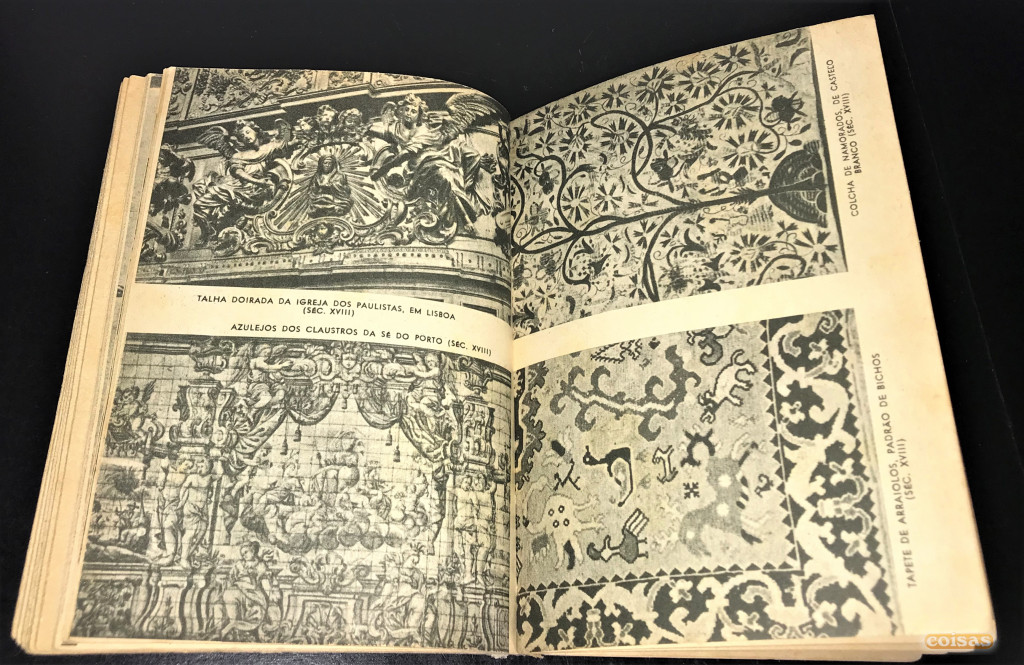 TALHA DOIRADA DA IGREJA DOS PAULISTAS, EM LISBOA
(SÉC. XVIII)
AZULEJOS DOS CLAUSTROS DA SÉ DO PORTO (SÉC. XVIII)
COLCHA DE NAMORADOS, DE CASTELO
BRANCO (SÉC. XVIII)
TAPETE DE ARRAIOLOS, PADRÃO DE BICHOS
(SÉC. XVIII)
coisas